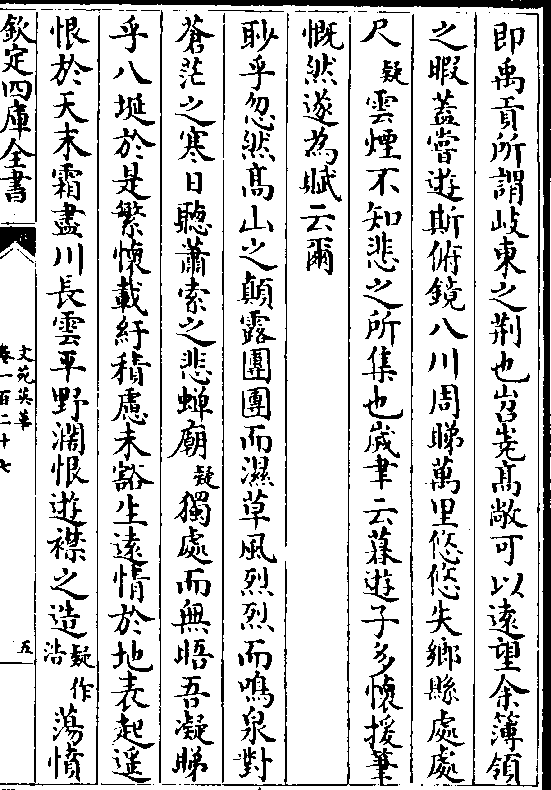 即禹貢所謂岐東之荆也岧嶤髙敞可以遠望余簿領
之暇蓋嘗遊斯俯鏡八川周睇萬里悠悠失鄉縣處處
尺疑雲煙不知悲之所集也嵗聿云暮遊子多懷援筆
慨然遂為賦云爾
眇乎忽然髙山之顛露團團而濕草風烈烈而鳴泉對
蒼茫之寒日聽蕭索之悲蟬廟疑獨處而無晤吾凝睇
乎八埏於是繁懷載紆積慮未豁生遠情於地表起遥
恨於天末霜盡川長雲平野濶恨遊襟之造疑作浩蕩憤
欽定四庫全書
文苑英華
卷一百二十七
五